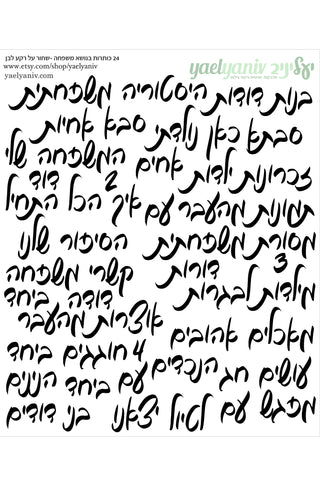 יעליניב yaelyaniv
24 כותרות בנושא משפחה -שחור על רקע לבן
www.etsy.com/shop/yaelyaniv
yaelyaniv.com
בנות דודות היסטוריה משפחתית
סבתא כאן נולדתי סבא אחיות
זכרונות ילדות אחים המשפחה שלי
תמונות מהעבר עם איך הכל התחיל 2 דוד
מסורת משפחתית הסיפור שלנו
3 דורות קשרי משפחה
מילדות לבגרות דודה ביחד
אוצרות מהעבר
מאכלים אהובים 4 חוגגים ביחד
עושים חג הנכדים עם ביחד הנינים
מפגש עם לטיול יצאנו בני דודים